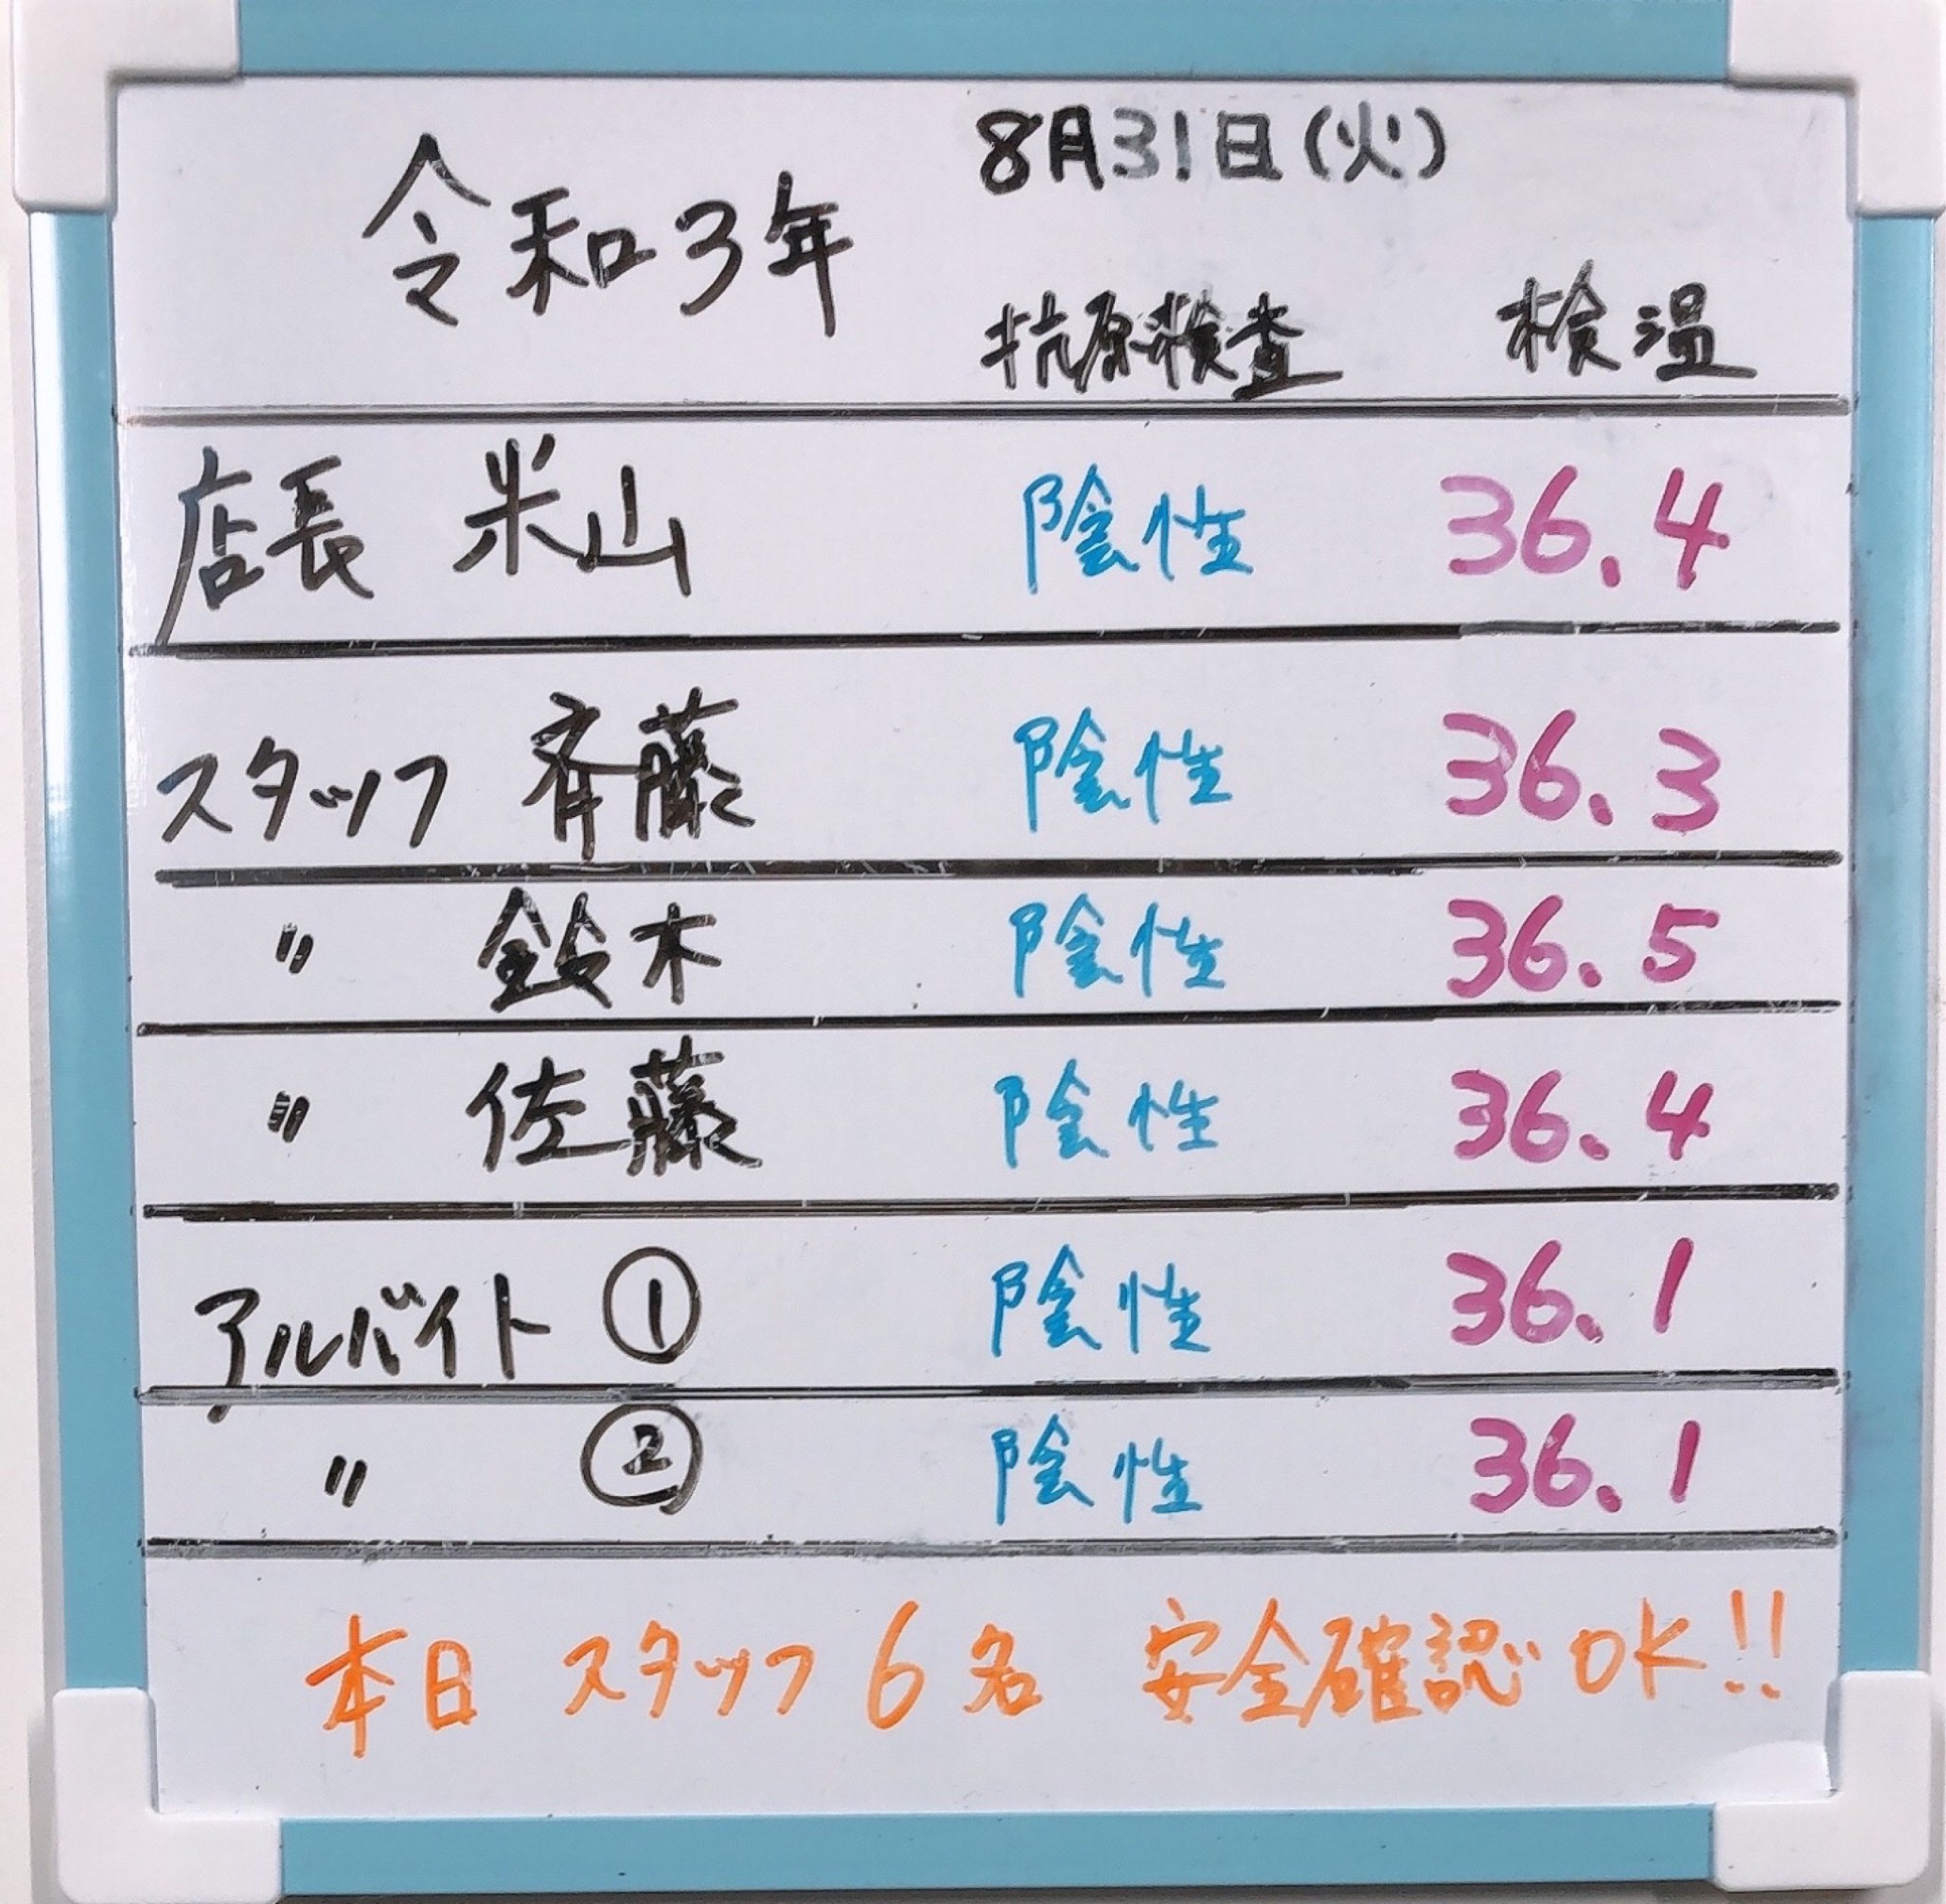 令和3年 8月31日(火)
抗原検査 検温
店長 米山 陰性 36.4
スタッフ 斉藤 陰性 36.3
〃 鈴木 陰性 36.5
〃 佐藤 陰性 36.4
アルバイト ① 陰性 36.1
〃 ② 陰性 36.1
本日 スタッフ 6名 安全確認 OK!!